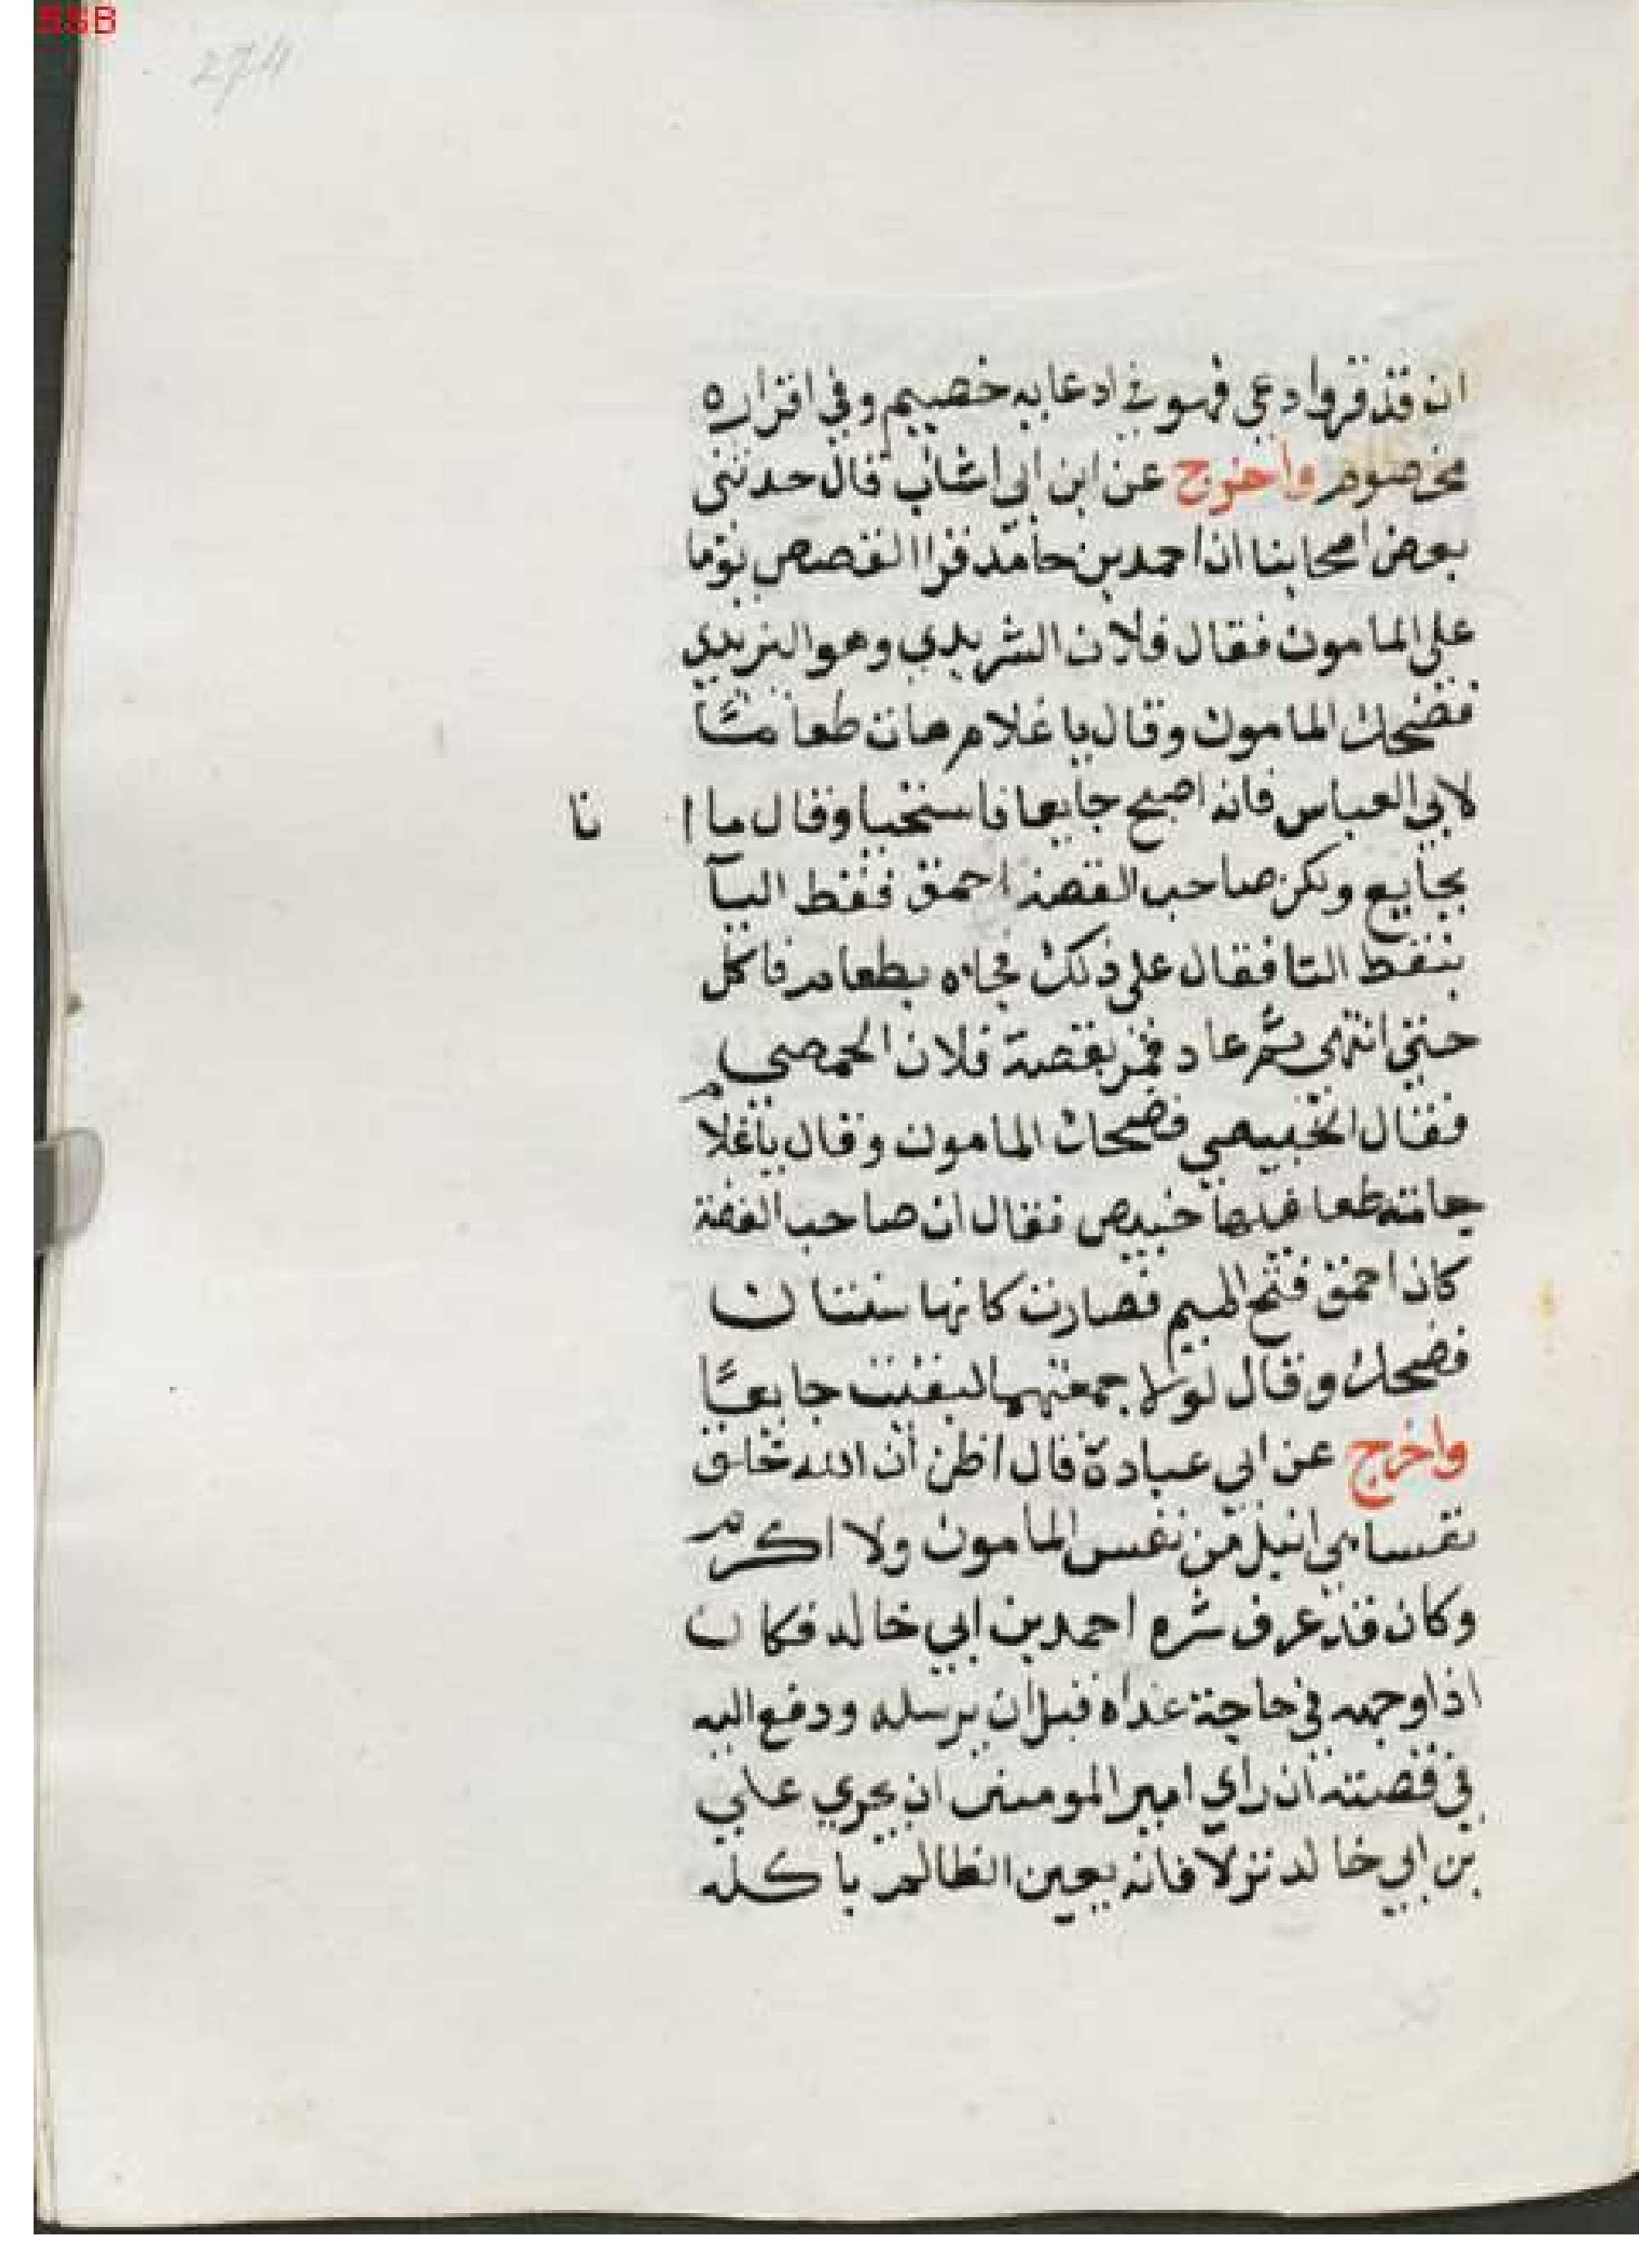 274
ان قد قروا دعى فهو في ادعايه خصيم وفي اقراره
مخصوم واخرج عن ابن ابي اشاب قال حدثني
بعض اصحابنا ان احمد بن حامد قرا القصص يوما
على المامون فقال فلان الثريدي وهو اليزيدي
فضحك المامون وقال يا غلام هات طعاما
لابي العباس فانه اصبح جايعا فاستحيا وقال ما انا
بجايع ولكن صاحب القصة احمق فنقط اليا
بنقط التا فقال على ذلك فجاه بطعام فاكل
حتى انتهى ثم عاد فمر بقصة فلان الحمصي
فقال الخبيصي فضحك المامون وقال يا غلام
جامة طعام فيها خبيص فقال ان صاحب القصة
كان احمق فتح الميم فصارت كانها سنتان
فضحك وقال لولا حمقهما لبقيت جايعا
واخرج عن ابي عبادة قال اظن ان الله خلق
نفسا هي انبل من نفس المامون ولا اكرم
وكان قد عرف شره احمد بن ابي خالد فكان
اذا وجهه في حاجة غداه قبل ان يرسله ودفع اليه
في قصته ان راي امير المومنين ان يجري علي
بن ابي خالد نزلا فانه يعين الظالم باكله